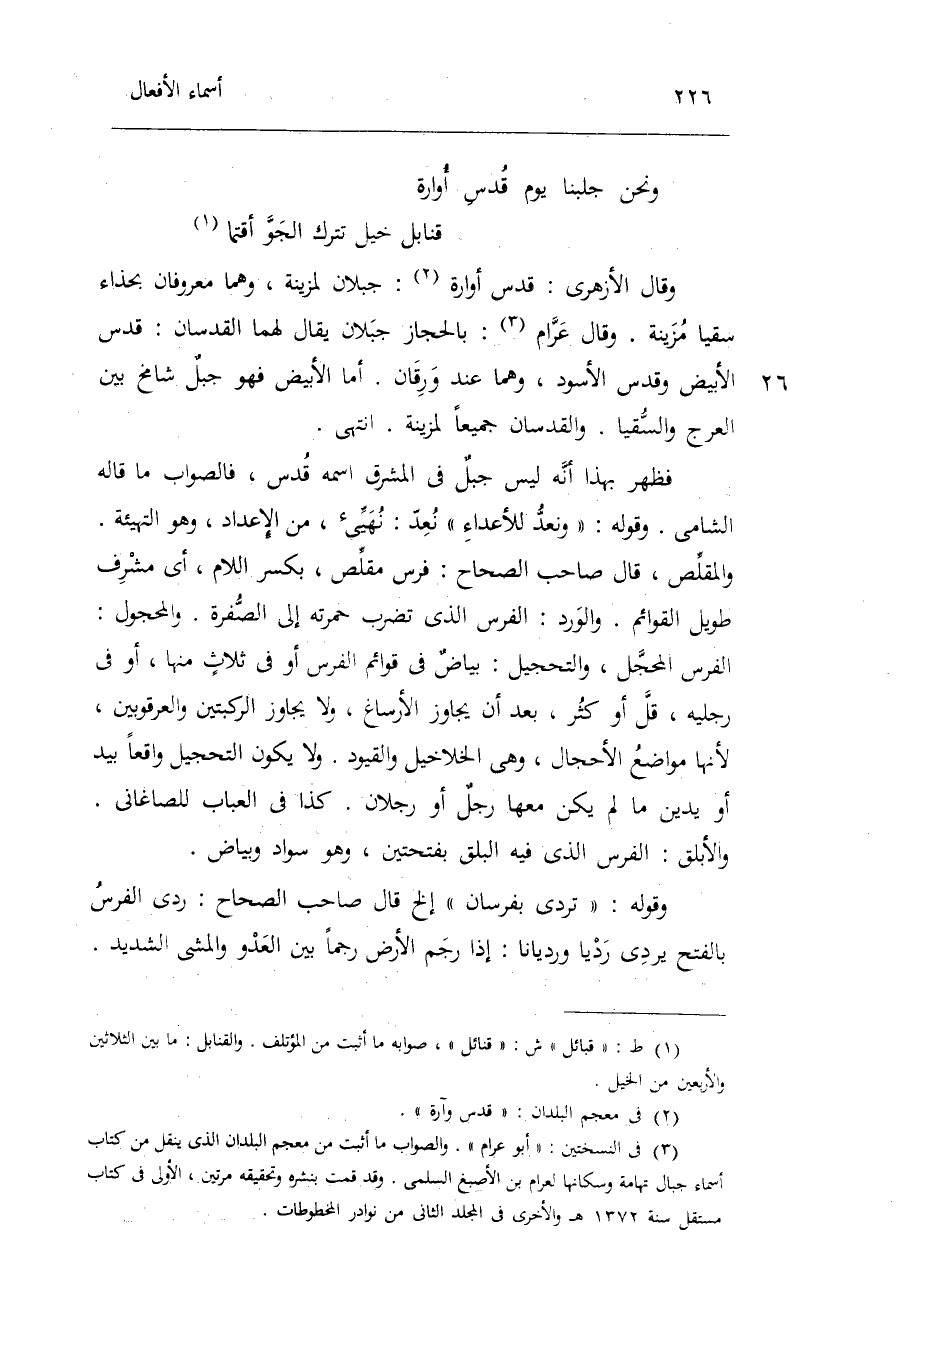 ٢٢٦
أسماء الأفعال
ونحن جلبنا يوم قُدسِ أُوارة
قنابل خيل تترك الجَوَّ أقتما (١)
وقال الأزهرى : قدس أوارة (٢) : جبلان لمزينة ، وهما معروفان بحذاء
سقيا مُزَينة . وقال عَرَّام (٣) : بالحجاز جبَلان يقال لهما القدسان : قدس
٢٦ الأبيض وقدس الأسود ، وهما عند وَرِقَان . أما الأبيض فهو جبلٌ شامخ بين
العرج والسُّقيا . والقدسان جميعاً لمزينة . انتهى .
فظهر بهذا أنَّه ليس جبلٌ فى المشرق اسمه قُدس ، فالصواب ما قاله
الشامى . وقوله : « ونعدُّ للأعداءِ » نُعِدّ : نُهَيِّئ ، من الإعداد ، وهو التهيئة .
والمقلِّص ، قال صاحب الصحاح : فرس مقلِّص ، بكسر اللام ، أى مشْرِف
طويل القوائم . والوَرد : الفرس الذى تضرب حمرته إلى الصُّفرة . والمحجول :
الفرس المحجَّل ، والتحجيل : بياضٌ فى قوائم الفرس أو فى ثلاثٍ منها ، أو فى
رجليه ، قلَّ أو كثُر ، بعد أن يجاوز الأرساغ ، ولا يجاوز الركبتين والعرقوبين ،
لأنها مواضعُ الأحجال ، وهى الخلاخيل والقيود . ولا يكون التحجيل واقعاً بيد
أو يدين ما لم يكن معها رجلٌ أو رجلان . كذا فى العباب للصاغانى .
والأبلق : الفرس الذى فيه البلق بفتحتين ، وهو سواد وبياض .
وقوله : « تردى بفرسان » إلخ قال صاحب الصحاح : ردى الفرسُ
بالفتح يردِى رَدْيا ورديانا : إذا رجَم الأرض رجماً بين العَدْو والمشى الشديد .
(١) ط : « قبائل » ش : « قنائل » ، صوابه ما أثبت من المؤتلف . والقنابل : ما بين الثلاثين
والأربعين من الخيل .
(٢) فى معجم البلدان : « قدس وآرة » .
(٣) فى النسختين : « أبو عرام » . والصواب ما أثبت من معجم البلدان الذى ينقل من كتاب
أسماء جبال تهامة وسكانها لعرام بن الأصبغ السلمى . وقد قمت بنشره وتحقيقه مرتين ، الأولى فى كتاب
مستقل سنة ١٣٧٢ هـ والأخرى فى المجلد الثانى من نوادر المخطوطات .